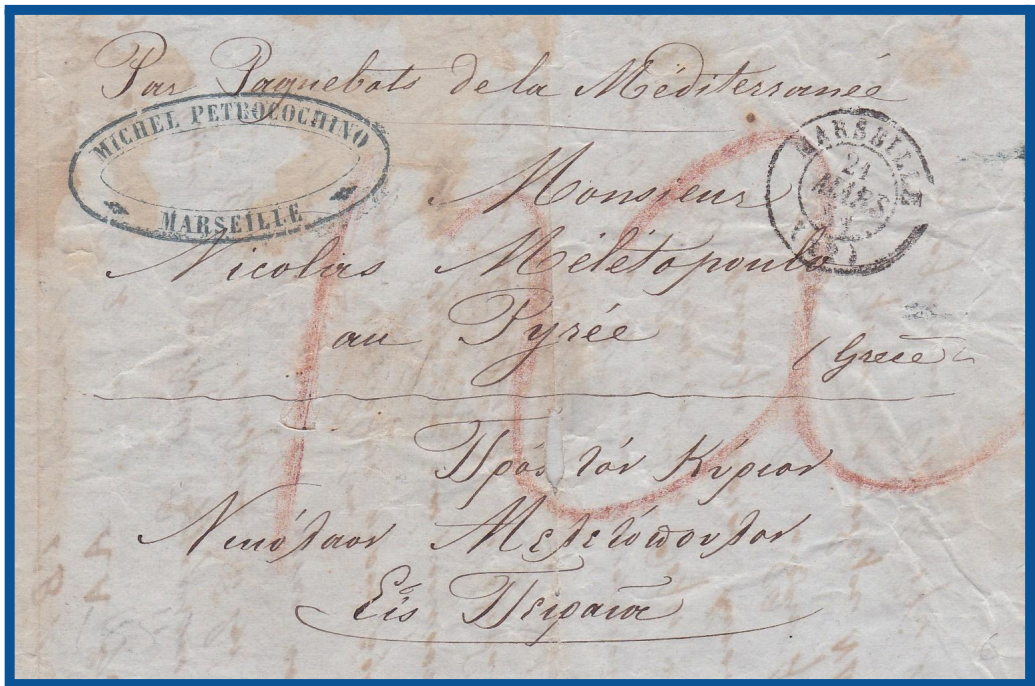 Par Paquebots de la Méditerranée
MICHEL PETROCOCHINO
MARSEILLE
MARSEILLE
21
MARS
(12)
Monsieur
Nicolas Mélétopoulo
au Pyrée
(Grèce)
100
Πρὸς τὸν Κύριον
Νικόλαον Μελετόπουλον
Εἰς Πειραιᾶ